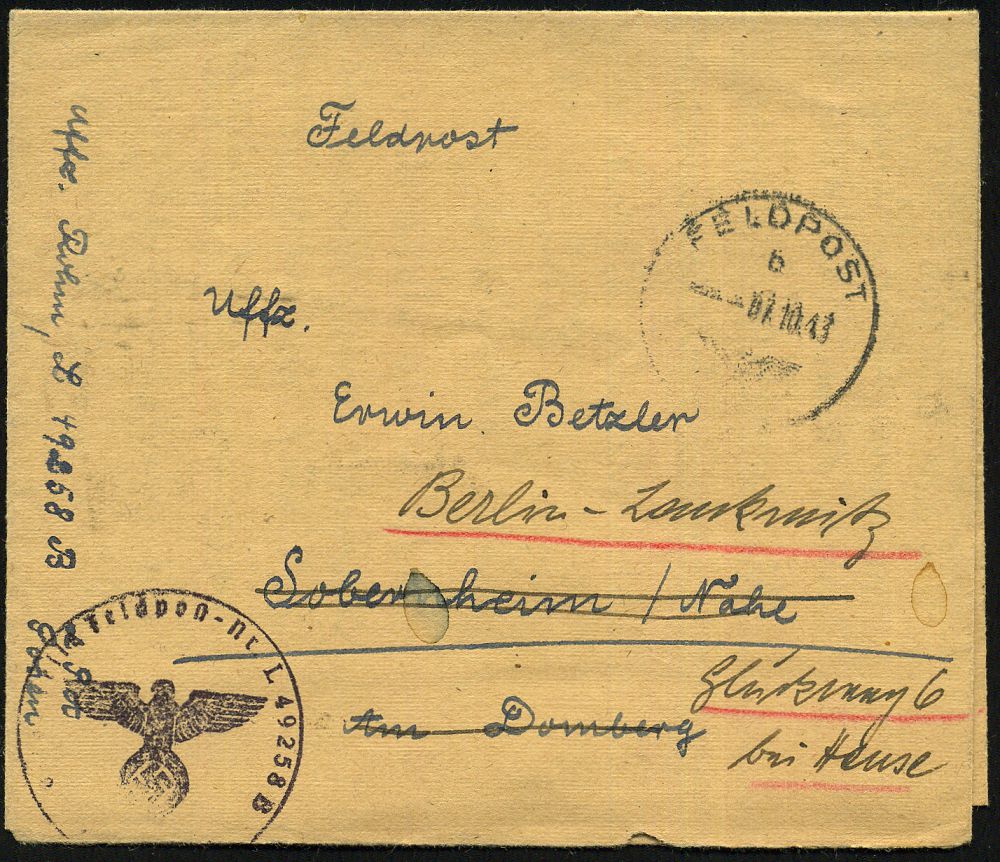 Feldpost
FELDPOST
b
07.10.43
Uffz.
Erwin Betzler
Berlin-Lankwitz
Sobernheim / Nahe
Glücksweg 6
Am Domberg
bei Hause
Uffz. L 49258 B
Feldpost-Nr. L 49258 B